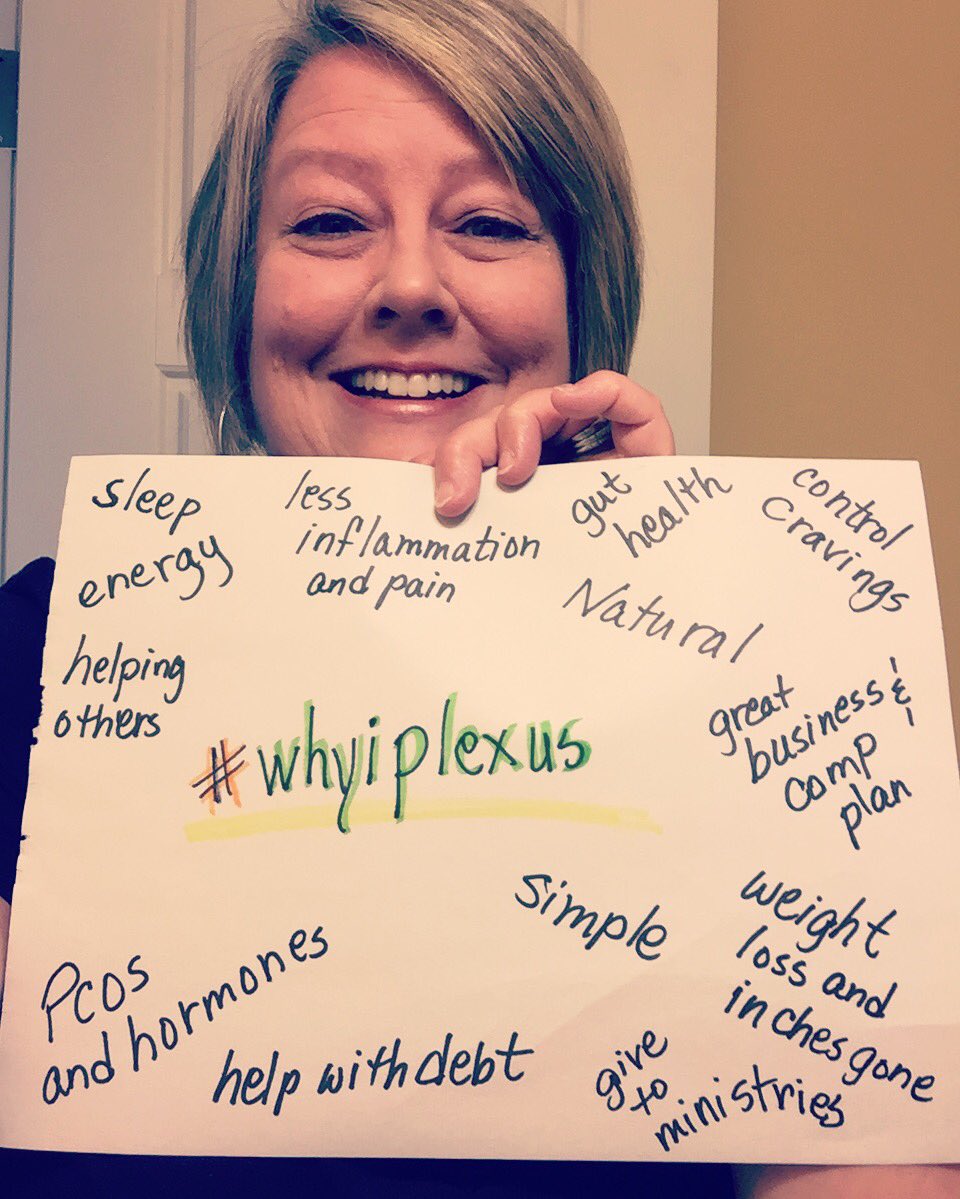 sleep
energy
helping
others
less
inflammation
and pain
gut
health
control
cravings
Natural
#whyiplexus
great
business &
comp
plan
simple
weight
loss and
inches gone
PCOS
and hormones
help with debt
give
to
ministries